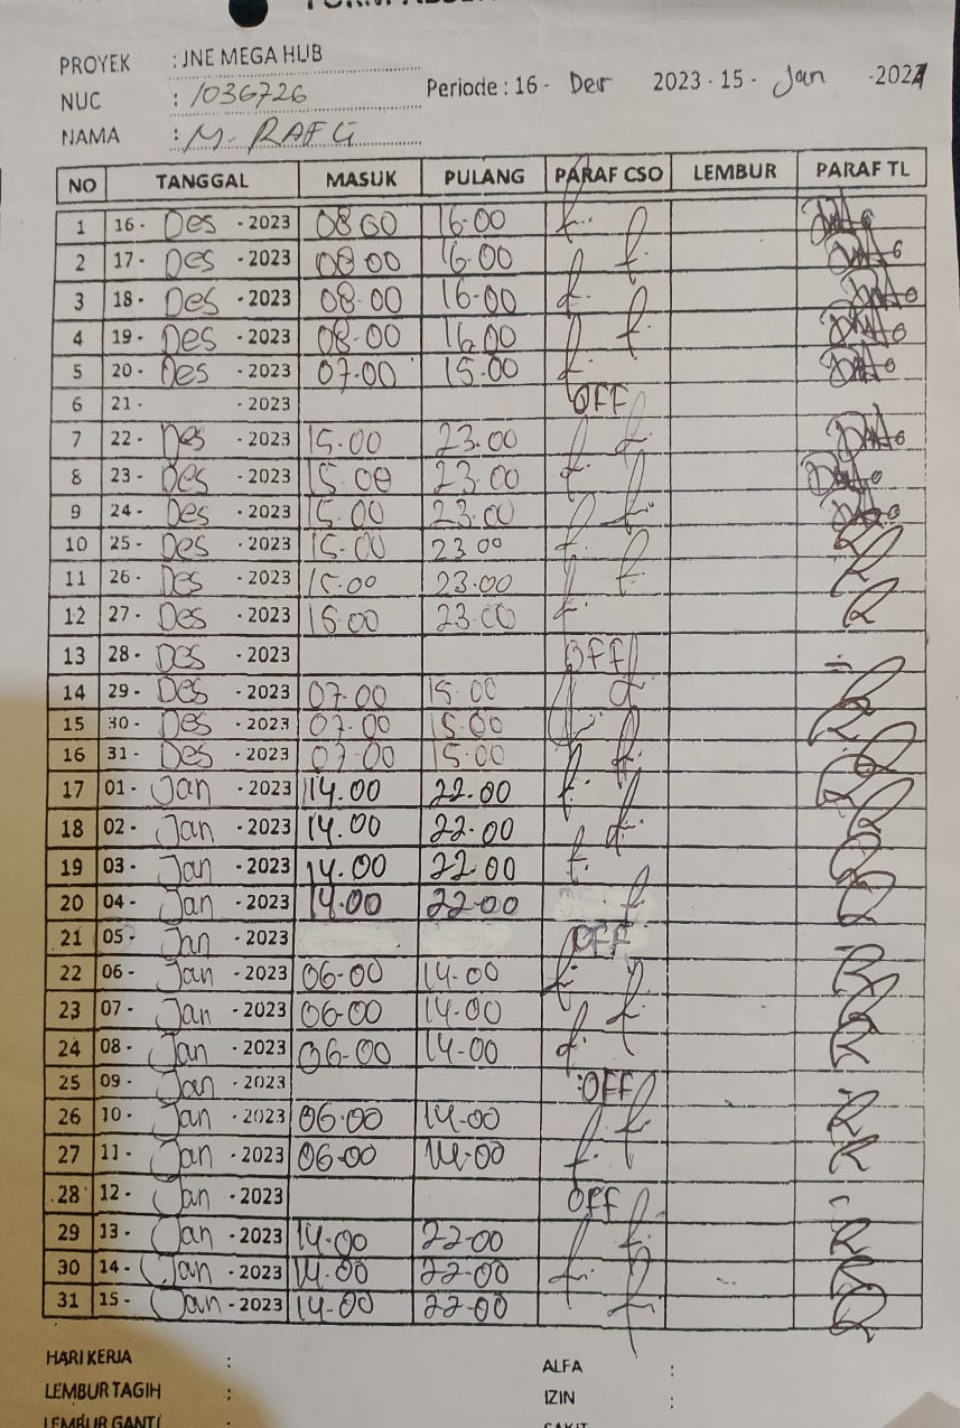 PROYEK : JNE MEGA HUB
NUC : 1036726 Periode : 16 - Des 2023 - 15 - Jan - 2024
NAMA : M. RAFLI
NO TANGGAL MASUK PULANG PARAF CSO LEMBUR PARAF TL
1 16 - Des - 2023 08 00 16-00
2 17 - Des - 2023 08 00 16-00
3 18 - Des - 2023 08-00 16-00
4 19 - Des - 2023 08-00 16.00
5 20 - Des - 2023 07-00 15-00
6 21 - - 2023 OFF
7 22 - Des - 2023 15-00 23.00
8 23 - Des - 2023 15 00 23 00
9 24 - Des - 2023 15.00 23.00
10 25 - Des - 2023 15-00 23 00
11 26 - Des - 2023 15.00 23.00
12 27 - Des - 2023 23.00
13 28 - Des - 2023 OFF
14 29 - Des - 2023 07.00 15-00
15 30 - Des - 2023 07.00 15.00
16 31 - Des - 2023 07.00 15.00
17 01 - Jan - 2023 14.00 22.00
18 02 - Jan - 2023 14.00 22.00
19 03 - Jan - 2023 14.00 22.00
20 04 - Jan - 2023 14.00 22-00
21 05 - Jan - 2023 OFF
22 06 - Jan - 2023 06-00 14-00
23 07 - Jan - 2023 06-00 14-00
24 08 - Jan - 2023 06-00 14-00
25 09 - Jan - 2023 OFF
26 10 - Jan - 2023 06.00 14-00
27 11 - Jan - 2023 06-00 14-00
28 12 - Jan - 2023 OFF
29 13 - Jan - 2023 14-00 22-00
30 14 - Jan - 2023 14.00 22-00
31 15 - Jan - 2023 14-00 22-00
HARI KERJA : ALFA :
LEMBUR TAGIH : IZIN :
LEMBUR GANTI SAKIT